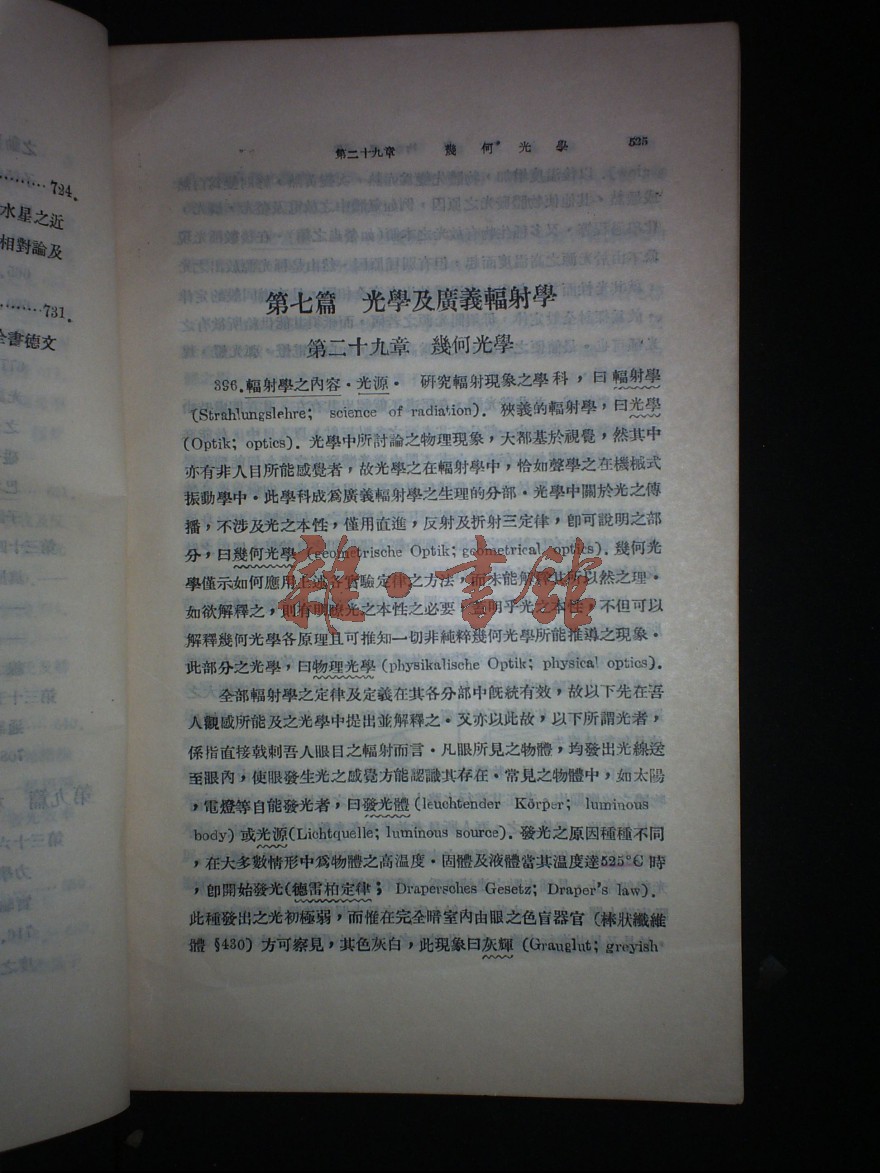 724.
水星之近
相對論及
731.
全書德文
第二十九章　幾何光學　525
第七篇　光學及廣義輻射學
第二十九章　幾何光學
396.輻射學之內容·光源·　研究輻射現象之學科，曰輻射學
(Strahlungslehre; science of radiation). 狹義的輻射學，曰光學
(Optik; optics). 光學中所討論之物理現象，大都基於視覺，然其中
亦有非人目所能感覺者，故光學之在輻射學中，恰如聲學之在機械式
振動學中·此學科成爲廣義輻射學之生理的分部·光學中關於光之傳
播，不涉及光之本性，僅用直進，反射及折射三定律，卽可說明之部
分，曰幾何光學 (geometrische Optik; geometrical optics). 幾何光
學僅示如何應用上述各實驗定律之方法，而未能解釋其所以然之理·
如欲解釋之，則有明瞭光之本性之必要，爲明乎光之本性，不但可以
解釋幾何光學各原理且可推知一切非純粹幾何光學所能推導之現象·
此部分之光學，曰物理光學 (physikalische Optik; physical optics).
全部輻射學之定律及定義在其各分部中旣統有效，故以下先在吾
人觀感所能及之光學中提出並解釋之·又亦以此故，以下所謂光者，
係指直接戟刺吾人眼目之輻射而言·凡眼所見之物體，均發出光線送
至眼內，使眼發生光之感覺方能認識其存在·常見之物體中，如太陽
，電燈等自能發光者，曰發光體 (leuchtender Körper; luminous
body) 或光源(Lichtquelle; luminous source). 發光之原因種種不同
，在大多數情形中爲物體之高溫度·固體及液體當其溫度達525°C 時
，卽開始發光(德雷柏定律; Drapersches Gesetz; Draper's law).
此種發出之光初極弱，而惟在完全暗室內由眼之色盲器官 (棒狀纖維
體 §430) 方可察見，其色灰白，此現象曰灰輝 (Grauglut; greyish
雜·書館